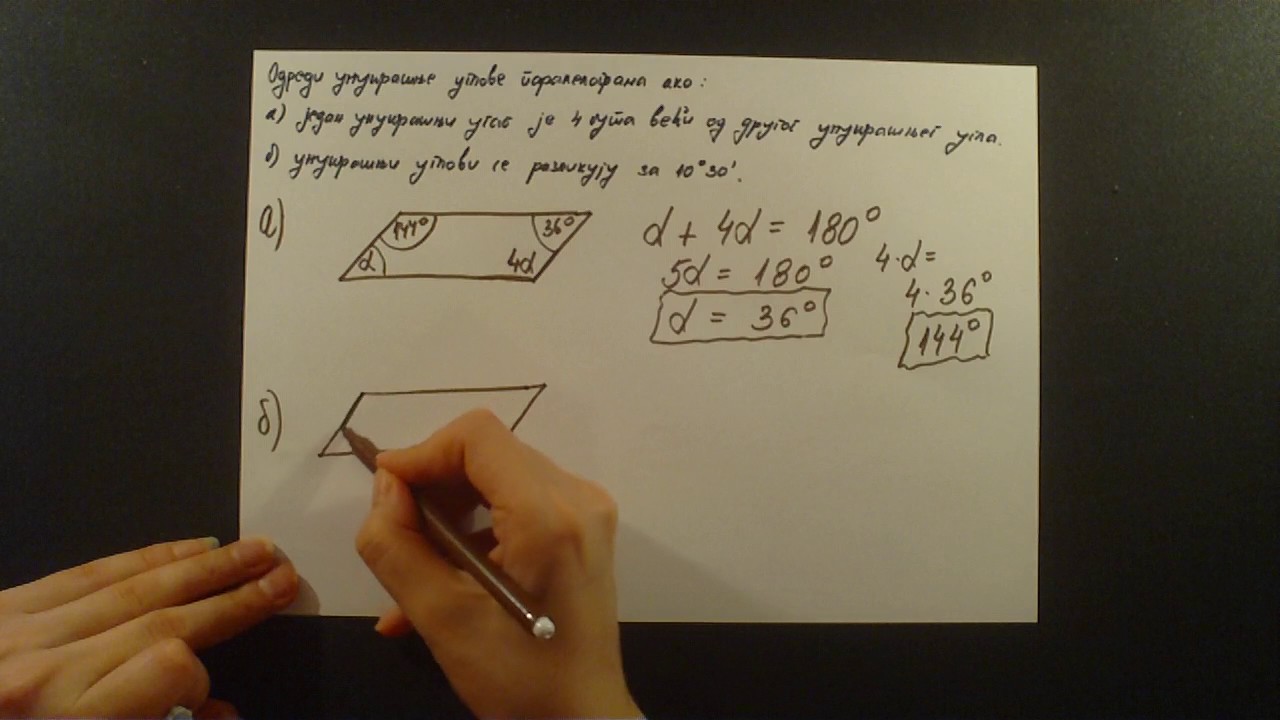 Одреди унутрашње углове паралелограма ако:
а) један унутрашњи угао је 4 пута већи од другог унутрашњег угла.
б) унутрашњи углови се разликују за 10°30'.
а)
144° 36°
α 4α
α + 4α = 180°
5α = 180°
α = 36°
4·α =
4·36°
144°
б)